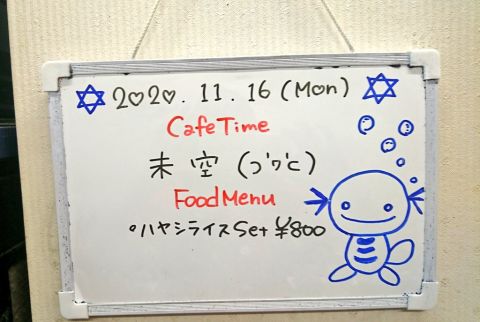 2020.11.16 (Mon)
Cafe Time
未空 (つづじ)
Food Menu
◦ハヤシライスSet ¥800